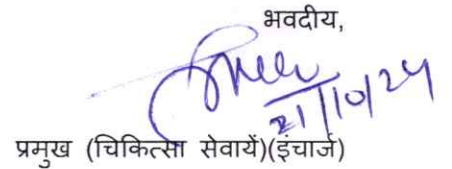 भवदीय,
21/10/24
प्रमुख (चिकित्सा सेवायें)(इंचार्ज)